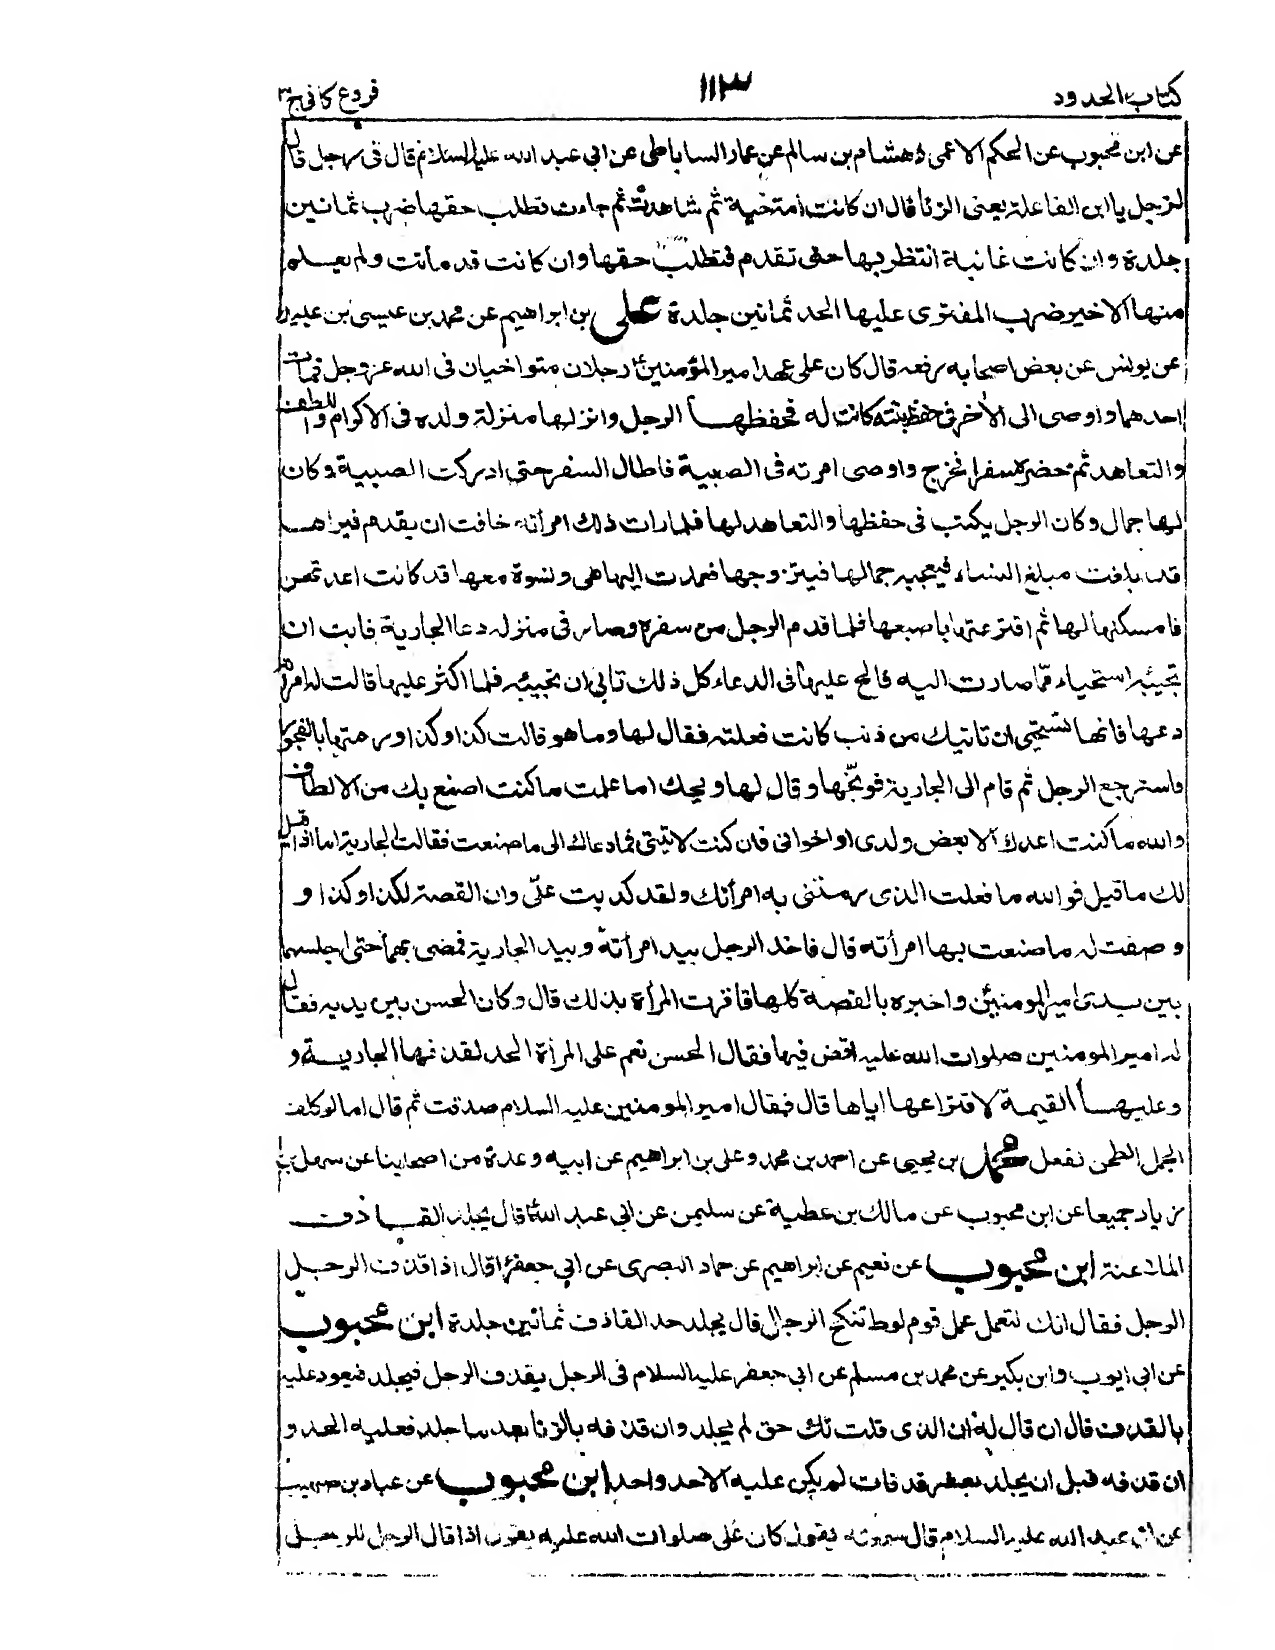 كتاب الحدود ١١٣ فروع كافى ج٣
عن ابن محبوب عن الحكم الاعمى وهشام بن سالم عن عمار الساباطى عن ابى عبد الله عليه السلام قال فى رجل قال
لرجل يا ابن الفاعلة يعنى الزنا قال ان كانت امه حية ثم شاهدت ثم جاءت تطلب حقها ضرب ثمانين
جلدة وان كانت غائبة انتظر بها حتى تقدم فتطلب حقها وان كانت قد ماتت ولم يعلم
منها الا خير ضرب المفترى عليها الحد ثمانين جلدة على بن ابراهيم عن محمد بن عيسى بن عبيد
عن يونس عن بعض اصحابه رفعه قال كان على عهد امير المؤمنين ع رجلان متواخيان فى الله عز وجل فمات
احدهما واوصى الى الأخر فى حفظ بنته كانت له فحفظها الرجل وانزلها منزلة ولده فى الاكرام واللطف
والتعاهد ثم حضره سفر فخرج واوصى امرته فى الصبية فاطال السفر حتى ادركت الصبية وكان
لها جمال وكان الرجل يكتب فى حفظها والتعاهد لها فلما رات ذلك امرأته خافت ان يقدم فيراها
قد بلغت مبلغ النساء فيعجبه جمالها فيتزوجها فعمدت اليها هى ونسوة معها قد كانت اعدتهن
فامسكنها لها ثم افترعتها باصبعها فلما قدم الرجل من سفره وصار فى منزله دعا الجارية فابت ان
تجيبه استحياء مما صارت اليه فالح عليها فى الدعاء كل ذلك تابى ان تجيبه فلما اكثر عليها قالت له امرأته
دعها فانها تستحيى ان تاتيك من ذنب كانت فعلته فقال لها وما هو قالت كذا وكذا ورمتها بالفجور
فاسترجع الرجل ثم قام الى الجارية فوبخها وقال لها ويحك اما علمت ما كنت اصنع بك من الالطاف
والله ما كنت اعدك الا بعض ولدى او اخوانى فان كنت لابنتى فما دعاك الى ما صنعت فقالت الجارية اما اذا قيل
لك ما قيل فوالله ما فعلت الذى رمتنى به امرأتك ولقد كذبت علىّ وان القصة لكذا وكذا و
وصفت له ما صنعت بها امرأته قال فاخذ الرجل بيد امرأته وبيد الجارية فمضى بهما حتى اجلسهما
بين يدى امير المومنين واخبره بالقصة كلها فاقرت المرأة بذلك قال وكان الحسن بين يديه فقال
له امير المومنين صلوات الله عليه اقض فيها فقال الحسن نعم على المرأة الحد لقذفها الجارية و
وعليها القيمة لافتراعها اياها قال فقال امير المومنين عليه السلام صدقت ثم قال اما لو كلف
الجمل الطحن لفعل محمد بن يحيى عن احمد بن محمد وعلى بن ابراهيم عن ابيه وعدة من اصحابنا عن سهل بن
زياد جميعا عن ابن محبوب عن مالك بن عطية عن سليمن عن ابى عبد الله ع قال يجلد القاذف
الملاعنة ابن محبوب عن نعيم عن ابراهيم عن حماد البصرى عن ابي جعفر ع قال اذا قذف الرجل
الرجل فقال انك لتعمل عمل قوم لوط تنكح الرجال قال يجلد حد القاذف ثمانين جلدة ابن محبوب
عن ابى ايوب وابن بكير عن محمد بن مسلم عن ابي جعفر عليه السلام فى الرجل يقذف الرجل فيجلد فيعود عليه
بالقذف قال ان قال له ان الذى قلت لك حق لم يجلد وان قذفه بالزنا بعد ما جلد فعليه الحد و
ان قذفه قبل ان يجلد بعشر قذفات لم يكن عليه الا حد واحد ابن محبوب عن عباد بن صهيب
عن ابى عبد الله عليه السلام قال سمعته يقول كان على صلوات الله عليه يقول اذا قال الرجل للرجل